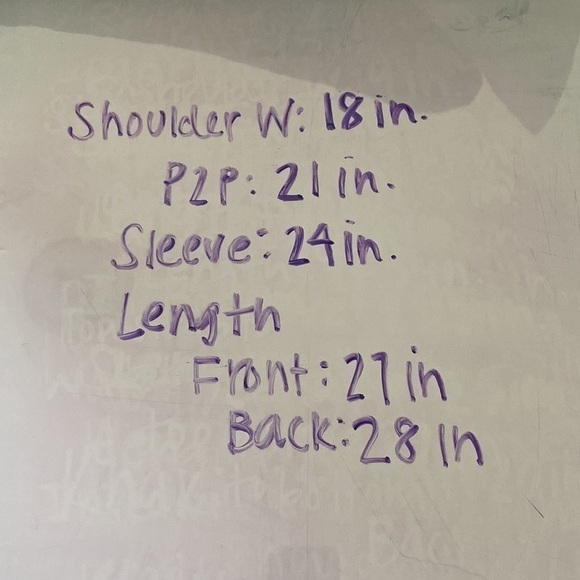 Shoulder W: 18 in.
P2P: 21 in.
Sleeve: 24 in.
Length
Front: 27 in
Back: 28 in